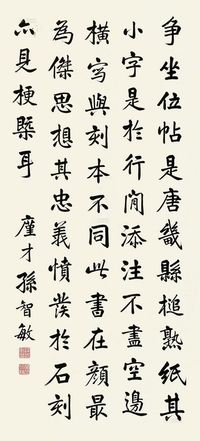 争坐位帖是唐畿縣槌熟纸其
小字是於行間添注不盡空邊
橫写與刻本不同此書在顔最
為傑思想其忠義憤發於石刻
亦見梗槩耳
廑才孫智敏